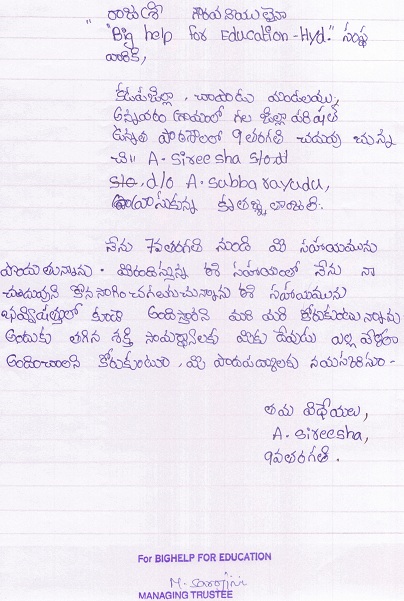 " రాజశ్రీ గౌరవనీయులైన
"Big help for Education-Hyd." సంస్థ
వారికి,
కడపజిల్లా, చాపాడు మండలము,
అన్నవరం గ్రామంలో గల జిల్లా పరిషత్
ఉన్నత పాఠశాలలో 9 తరగతి చదువు చున్న
చి॥ A. Sireesha
d/o A. Subba rayudu,
వ్రాసుకున్న కృతజ్ఞతలాంజలి.
నేను 7వ తరగతి నుండి మీ సహాయమును
పొందుతున్నాను. మీరందిస్తున్న ఈ సహాయంతో నేను నా
చదువుని కొనసాగించగలుగుచున్నాను ఈ సహాయమును
భవిష్యత్తులో కూడా అందిస్తారని మరీ మరీ కోరుకుంటున్నాను
అందుకు తగిన శక్తి సామర్థ్యాలను మీకు దేవుడు ఎల్ల వేళలా
అందించాలని కోరుకుంటూ, మీ పాదపద్మాలకు నమస్కరిస్తూ-
తమ విధేయులు,
A. Sireesha,
9వతరగతి.
For BIGHELP FOR EDUCATION
M. Sarojini
MANAGING TRUSTEE